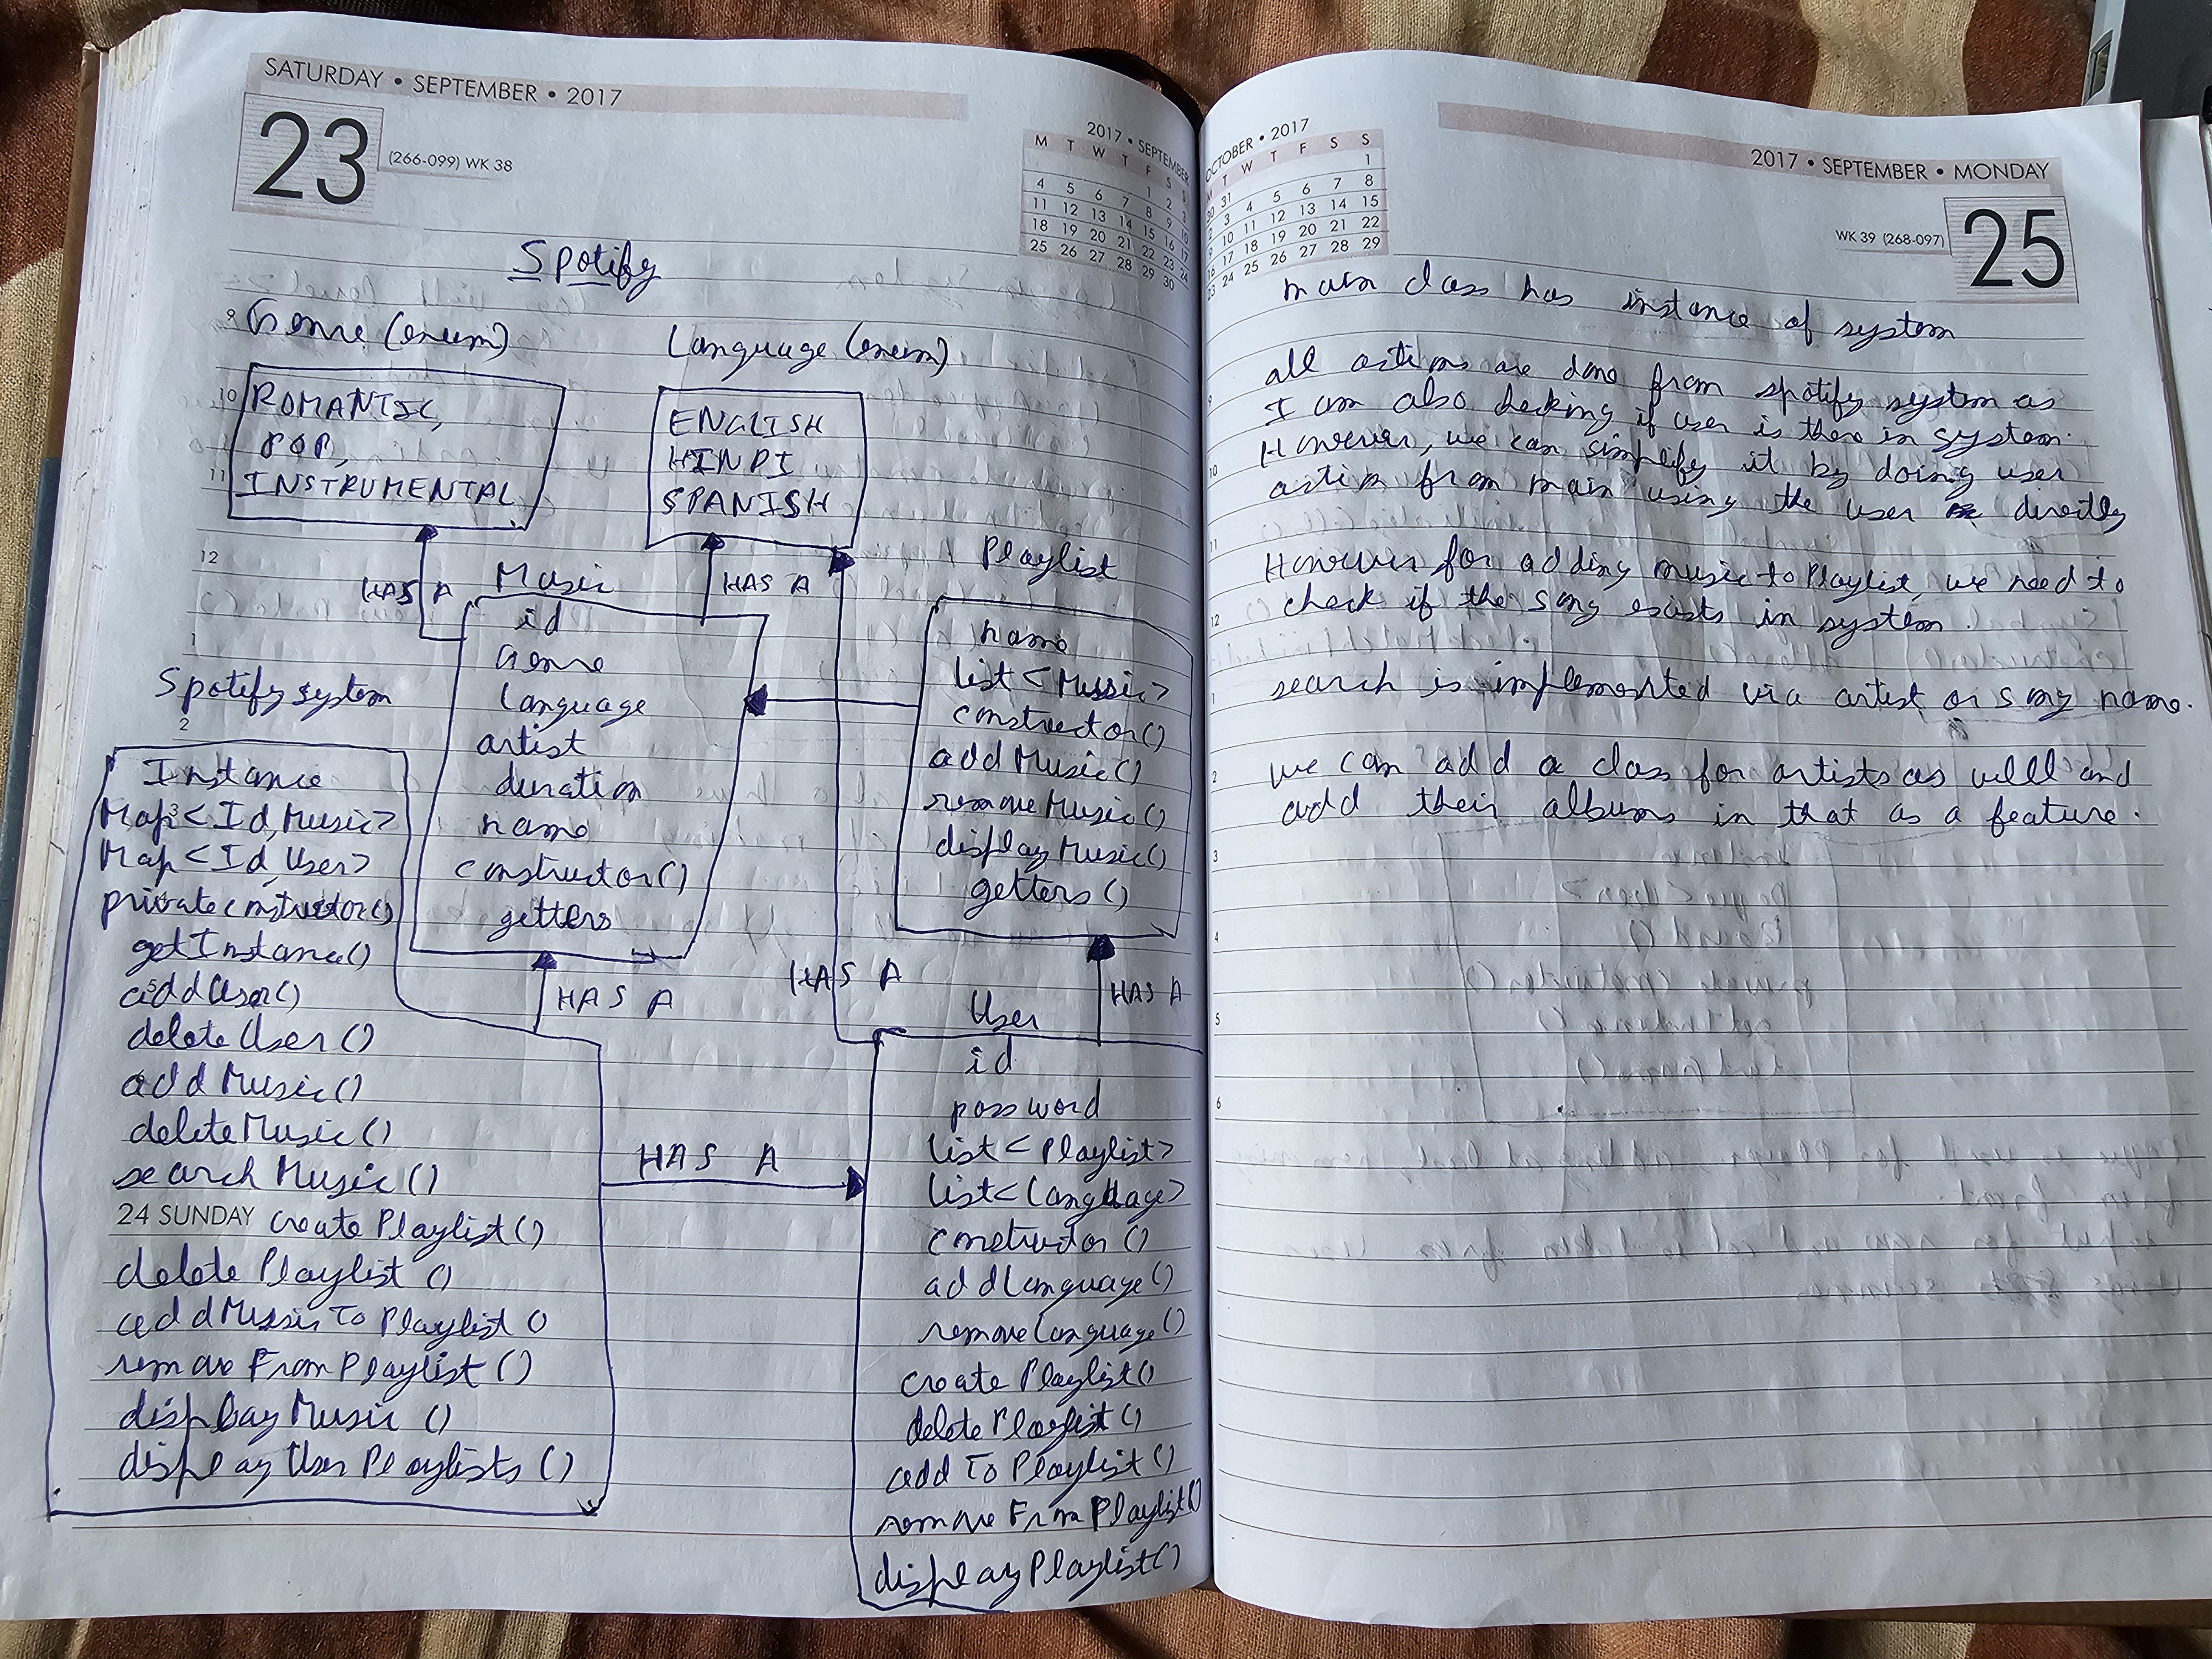 SATURDAY • SEPTEMBER • 2017
23
(266-099) WK 38
2017 • SEPTEMBER
M T W T F S S
1 2 3
4 5 6 7 8 9 10
11 12 13 14 15 16 17
18 19 20 21 22 23 24
25 26 27 28 29 30
Spotify
9
Genre (enum)
10
ROMANTIC,
POP,
11
INSTRUMENTAL
Language (enum)
ENGLISH
HINDI
SPANISH
12
HAS A
HAS A
Music
id
Genre
language
artist
duration
name
constructor()
getters
1
Playlist
name
list <Music>
constructor()
addMusic()
removeMusic()
displayMusic()
getters()
Spotify system
2
Instance
3
Map<Id,Music>
Map<Id,User>
private constructor()
getInstance()
5
addUser()
delete User()
addMusic()
deleteMusic()
search Music()
24 SUNDAY create Playlist()
delete Playlist ()
addMusic To Playlist ()
remove From Playlist ()
display Music ()
display User Playlists ()
HAS A
HAS A
HAS A
HAS A
User
id
password
list<Playlist>
list<Language>
constructor ()
addLanguage()
removeLanguage()
create Playlist()
delete Playlist()
add To Playlist()
remove From Playlist()
display Playlist()
OCTOBER • 2017
M T W T F S S
30 31 1
2 3 4 5 6 7 8
9 10 11 12 13 14 15
16 17 18 19 20 21 22
23 24 25 26 27 28 29
2017 • SEPTEMBER • MONDAY
WK 39 (268-097)
25
main class has instance of system
all actions are done from spotify system as
9
I am also checking if user is there in system.
However, we can simplify it by doing user
10
action from main using the user directly
11
However for adding music to Playlist, we need to
check if the song exists in system.
12
search is implemented via artist or song name.
1
we can add a class for artists as well and
2
add their albums in that as a feature.
3
4
5
6